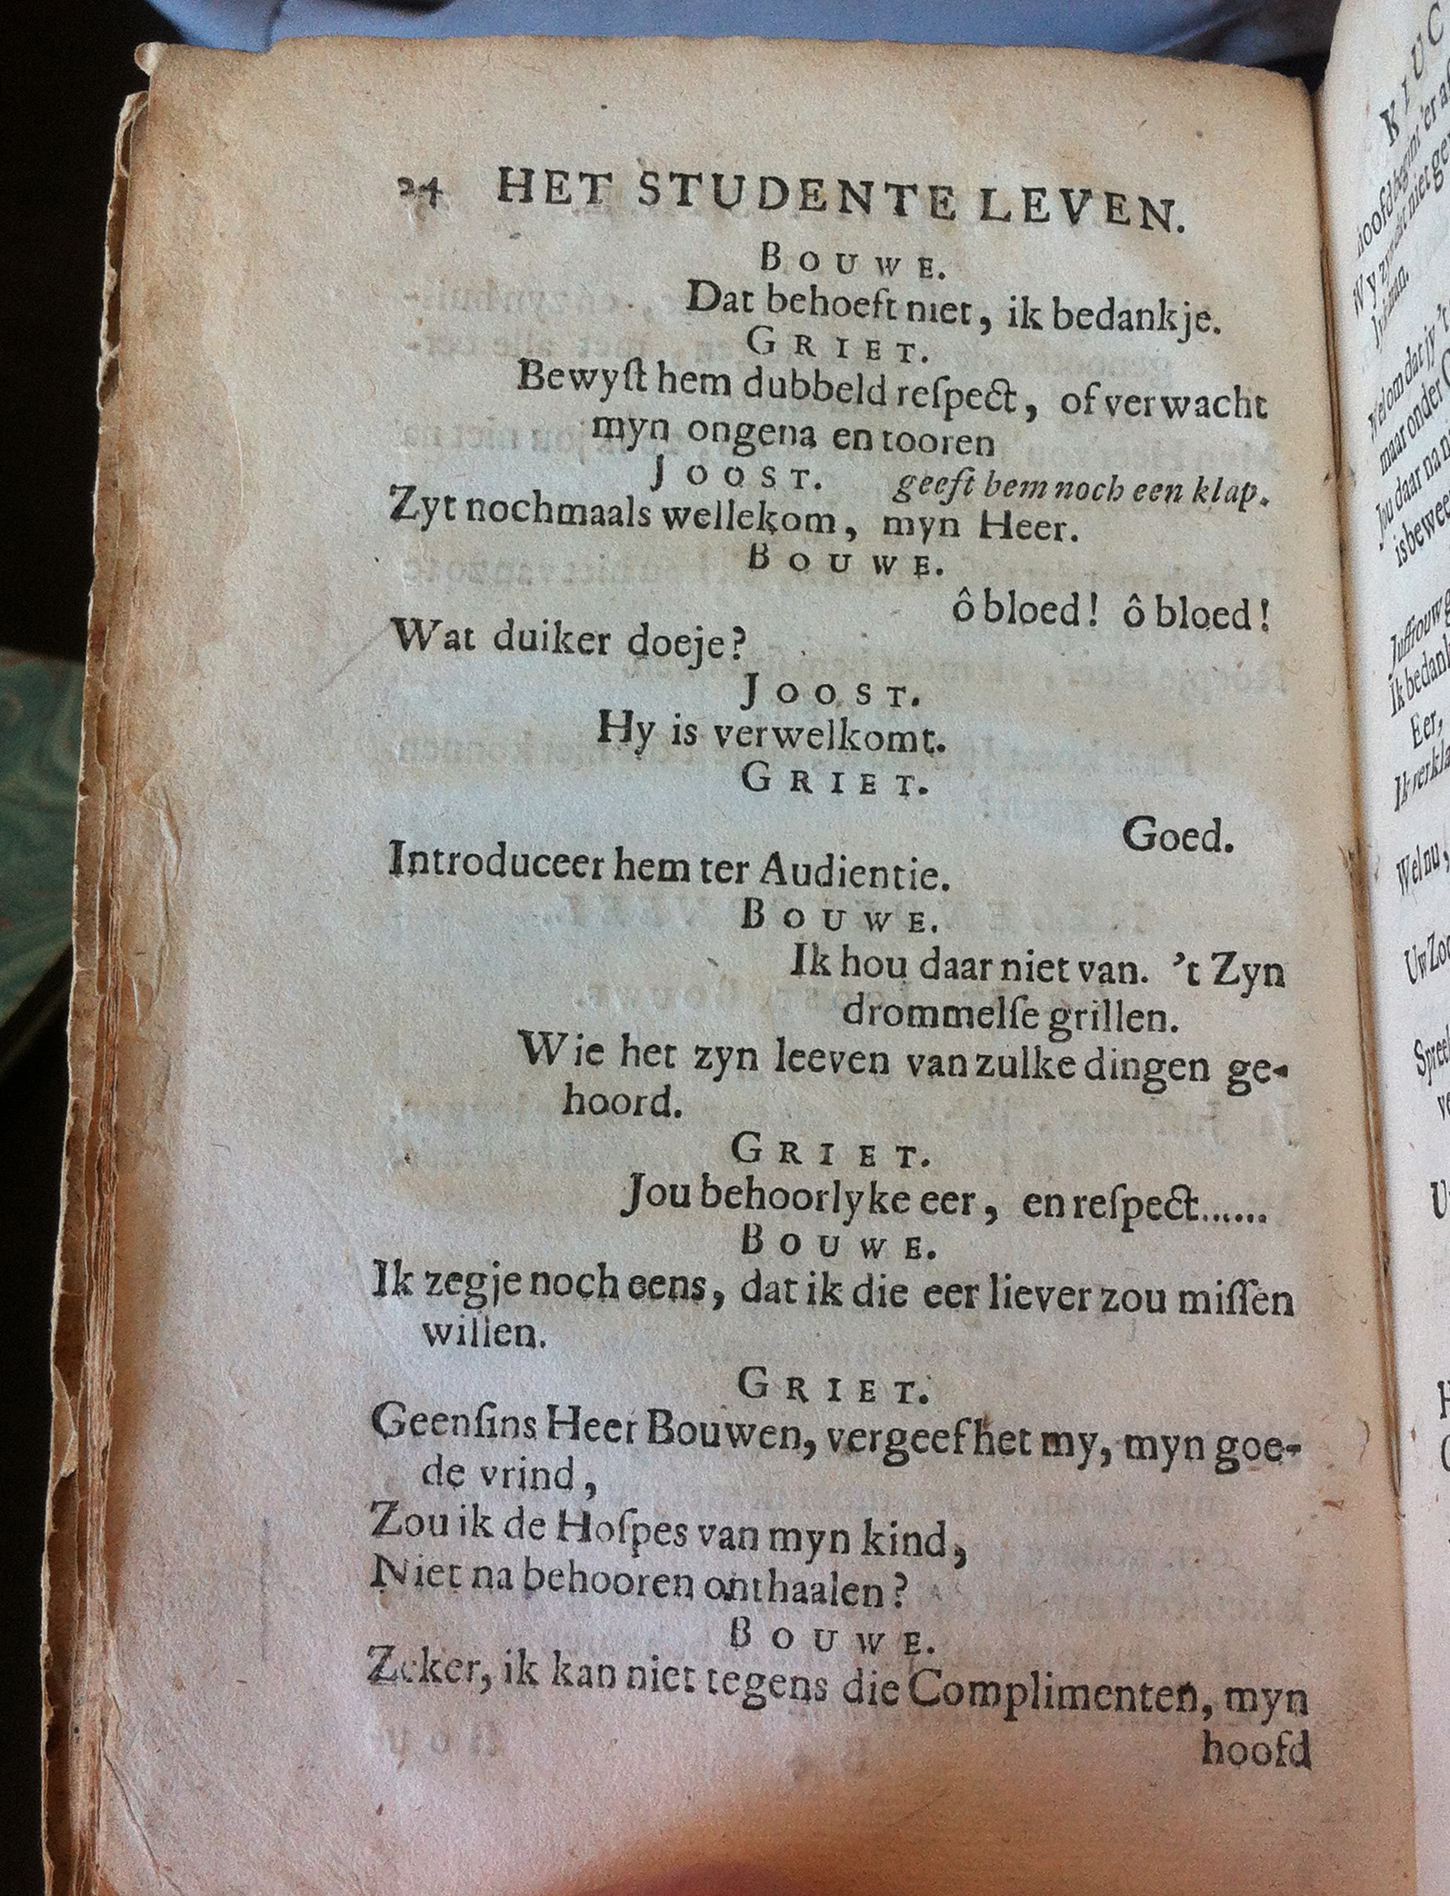 24 HET STUDENTE LEVEN.
BOUWE.
Dat behoeft niet, ik bedankje.
GRIET.
Bewyſt hem dubbeld reſpect, of verwacht
myn ongena en tooren
JOOST. geeft hem noch een klap.
Zyt nochmaals wellekom, myn Heer.
BOUWE.
ô bloed! ô bloed!
Wat duiker doeje?
JOOST.
Hy is verwelkomt.
GRIET.
Goed.
Introduceer hem ter Audientie.
BOUWE.
Ik hou daar niet van. 't Zyn
drommelſe grillen.
Wie het zyn leeven van zulke dingen ge-
hoord.
GRIET.
Jou behoorlyke eer, en reſpect......
BOUWE.
Ik zegje noch eens, dat ik die eer liever zou miſſen
willen.
GRIET.
Geenſins Heer Bouwen, vergeef het my, myn goe-
de vrind,
Zou ik de Hoſpes van myn kind,
Niet na behooren onthaalen?
BOUWE.
Zeker, ik kan niet tegens die Complimenten, myn
hoofd
KLUC
hoofd begint 'er a
niet ge
Wel om dat jy 't
maar onder
Jou daar na
is bewee
Juffrouw g
Ik bedank
Eer,
Ik verkla
Wel nu,
Uw Zoo
Spree
ve